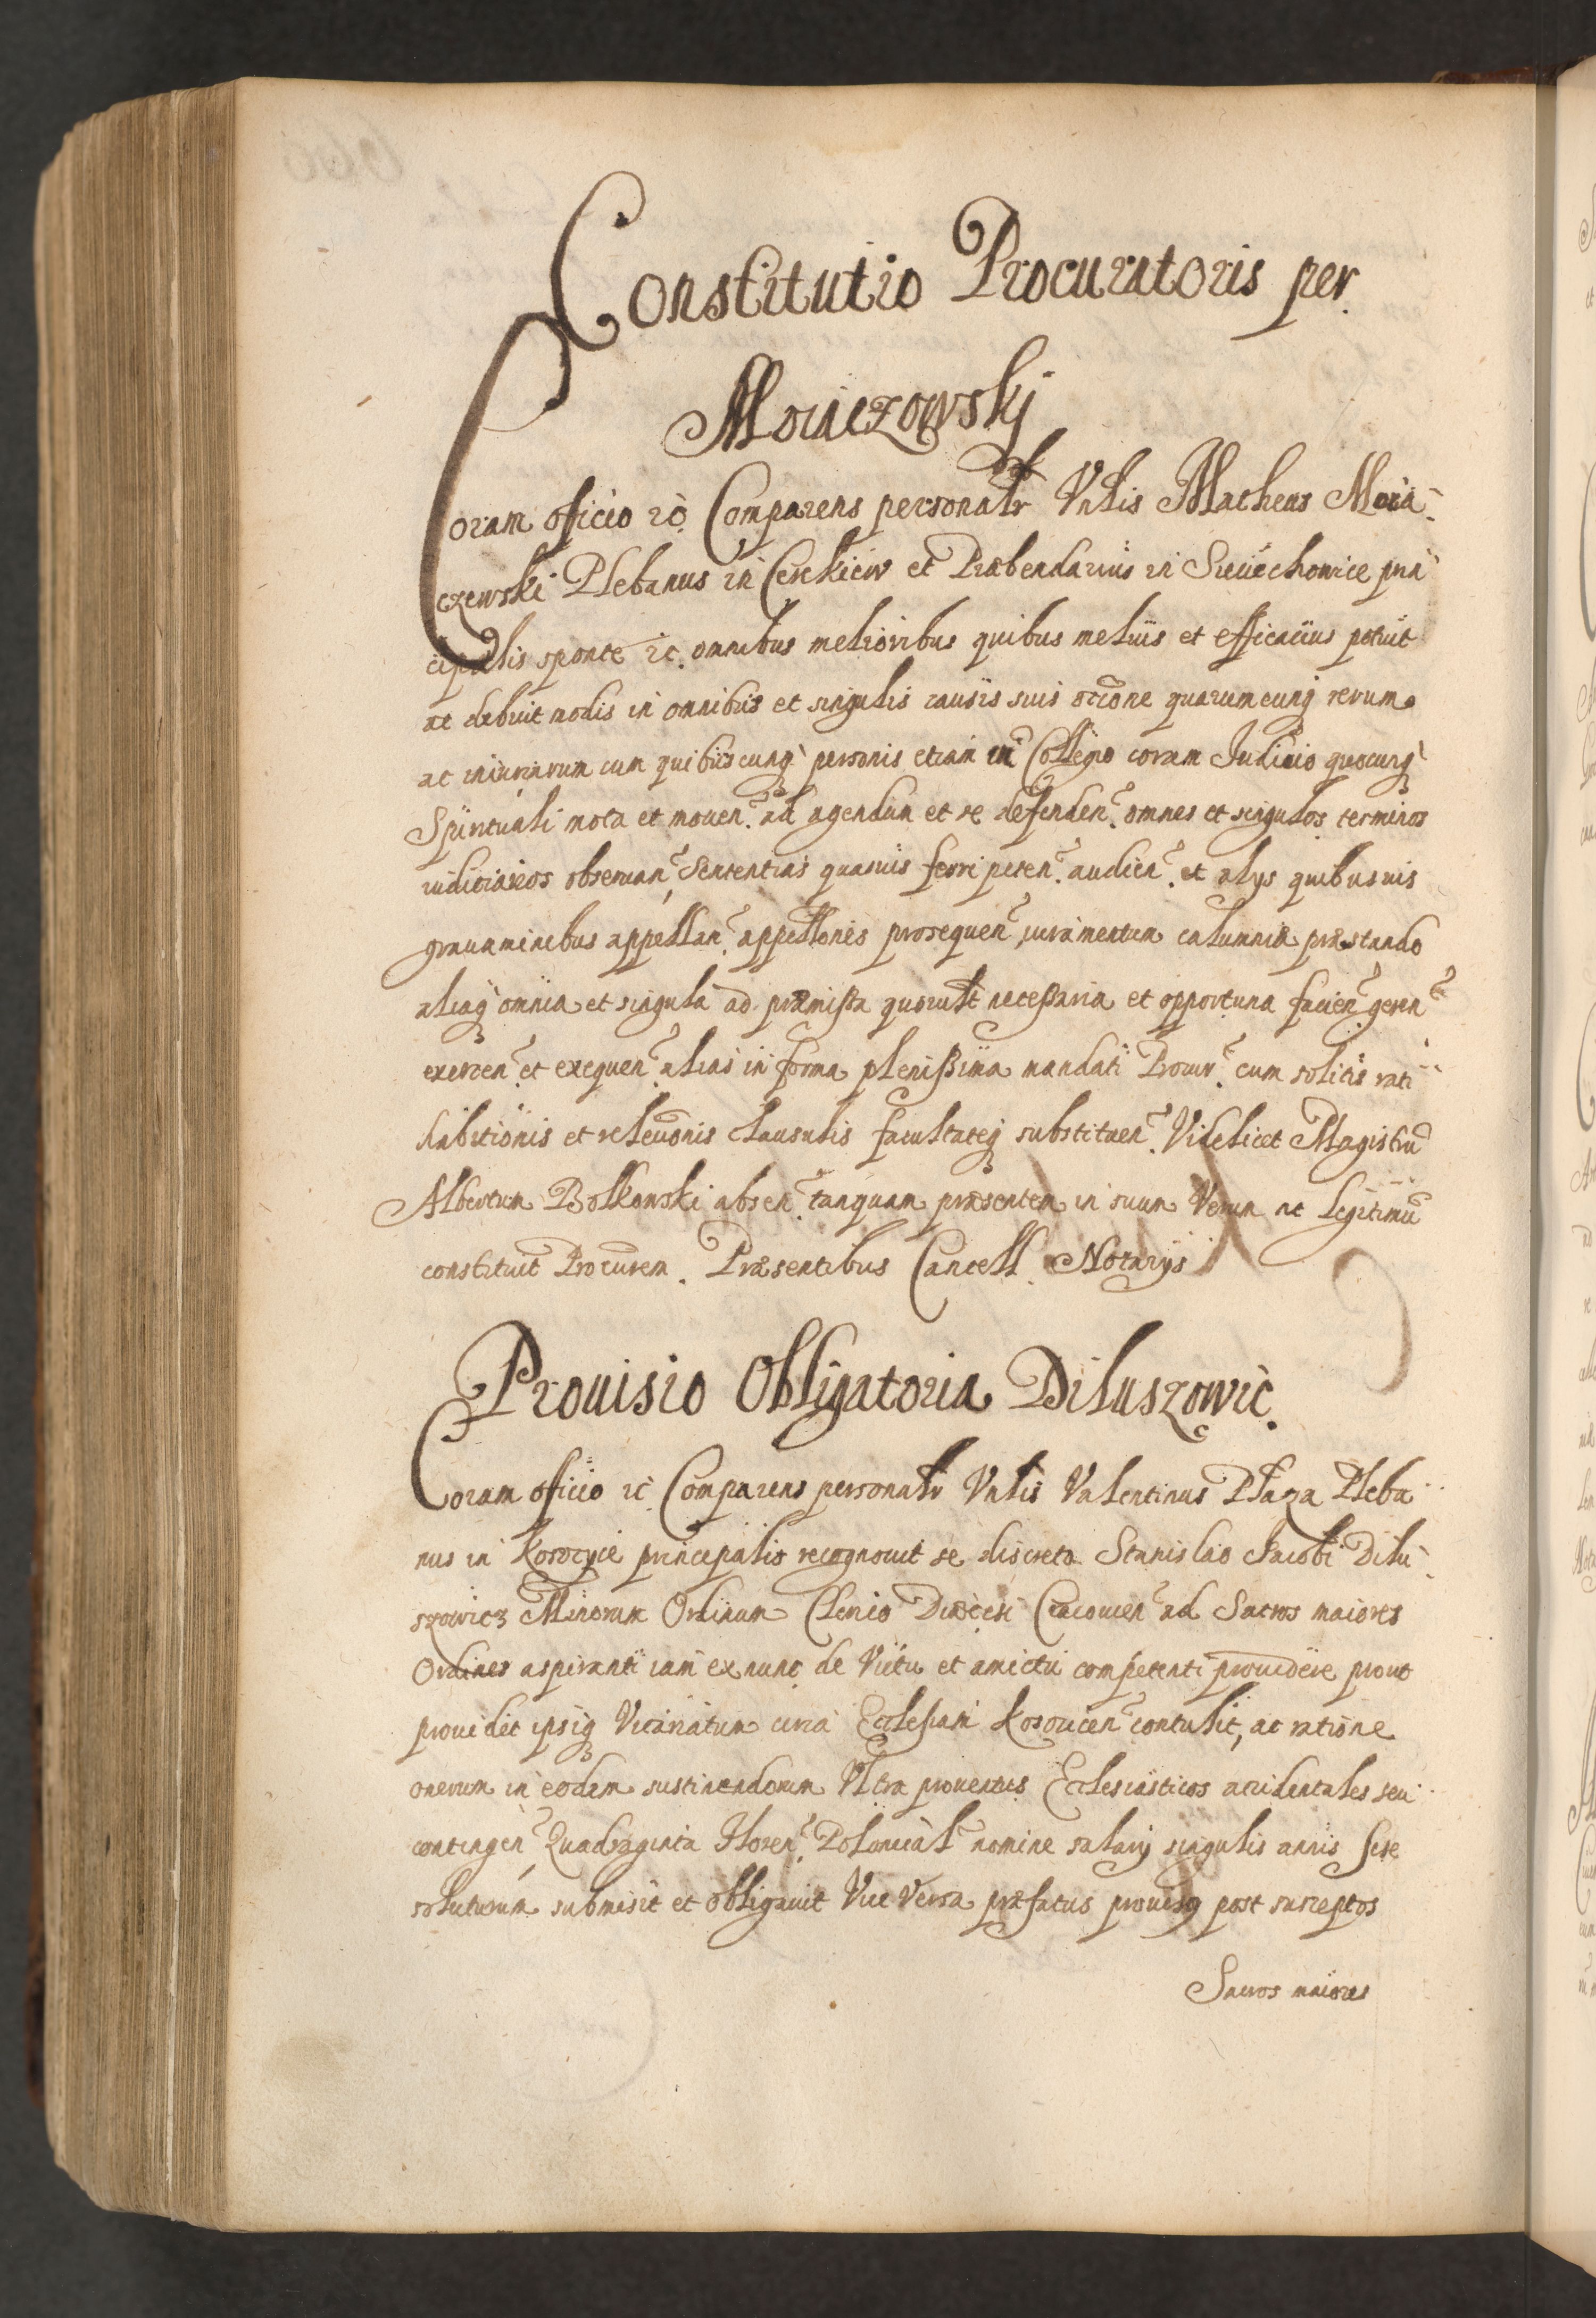 Constitutio Procuratoris per
Moraczowskj
Coram officio rc Comparens personalr Vnlis Matheus Mora-
czewski Plebanus in Cerekiew et Præbendarius in Sieciechowice prin
cipalis sponte rc. omnibus melioribus quibus melius et efficacius potuit
ac debuit modis in omnibus et singulis causis suis occone quarumcunq rerum
ac iniuriarum cum quibuscunq personis etiam in Collegio coram Judicio quocunq
Spirituali mota et mouen. ad agendum et se defenden. omnes et singulos terminos
iudiciarios obseruan, Sententias quasuis ferri peten. audien. et alys quibusuis
grauaminibus appellan. appellones prosequen, iuramentum calumniæ præstando
aliaq omnia et singula ad præmissa necessaria et opportuna facien. geren
exercen. et exequen. alias in forma plenissima mandati Procur. cum solitis rati
habitionis et releuonis clausulis facultateq substituen. Videlicet Magistru
Albertum Bolkowski absen. tanquam præsentem in suum Verum ac Legitimu
constituit Procurem. Præsentibus Cancell. Notarijs
Prouisio Obligatoria Diluszowic.
Coram officio rc Comparens personalr Vnlis Valentinus Plaza Pleba
nus in Kosocyce principalis recognouit se discreto Stanislao Jacobi Dilu-
szowicz Minorum Ordinum Clerico Diæcesi Cracouien ad Sacros maiores
Ordines aspiranti iam ex nunc de Victu et amictu competenti prouidere prout
prouidet ipsiq Vicariatum circa Ecclesiam Kosocicen contulit, ac ratione
onerum in eodem sustinendorum Vltra prouentus Ecclesiasticos accidentales seu
contingen, Quadraginta floren. Polonical nomine salarij singulis annis sese
soluturum submisit et obligauit Vice Versa præfatus prouisq post susceptos
Sacros maiores